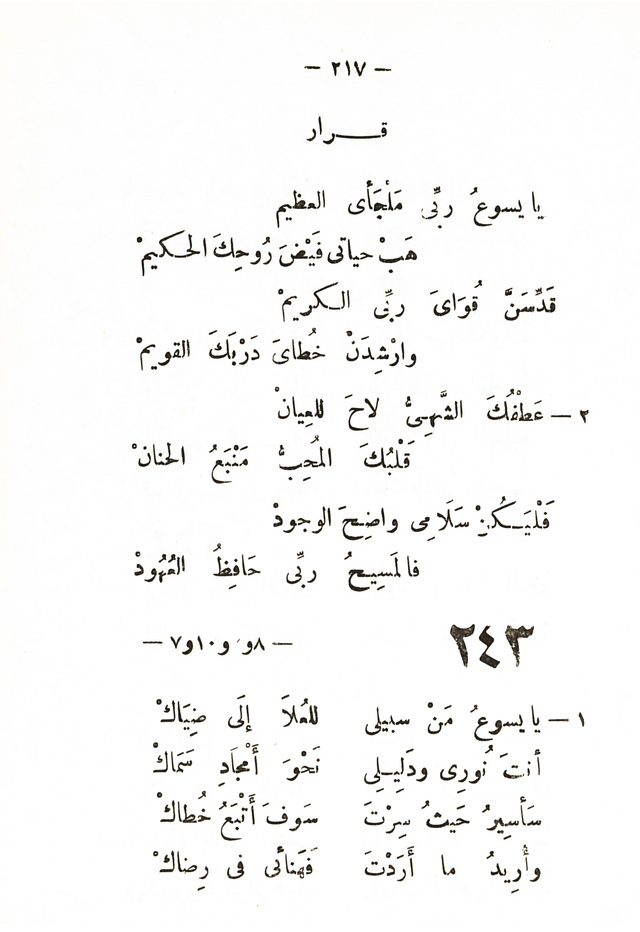 — ٢١٧ —
قـــرار
يا يسوعُ ربِّى مَلْجَأى العظيم
هَبْ حياتى فَيْضَ رُوحِكَ الحكيمْ
قَدِّسَنَّ قُوَاىَ ربِّى الكريمْ
وارْشِدَنْ خُطاىَ دَرْبَكَ القويمْ
٢ — عَطْفُكَ الشَّهِىُّ لاحَ للعِيانْ
قَلْبُكَ المُحِبُّ مَنْبَعُ الحنانْ
فَلْيَكُنْ سَلَامِى واضِحَ الوجودْ
فالمَسِيحُ ربِّى حَافِظُ العُهُودْ
٢٤٣ — ٨و و١٠و٧ —
١ — يا يسوعُ مَنْ سبيلى للعُلاَ إلَى ضِيَاكْ
أنتَ نُورِى ودَلِيلِى نَحْوَ أَمْجَادِ سَمَاكْ
سَأسِيرُ حَيثُ سِرْتَ سَوفَ أَتْبَعُ خُطاكْ
وأُرِيدُ ما أَرَدْتَ فَهَنائى فى رِضاكْ